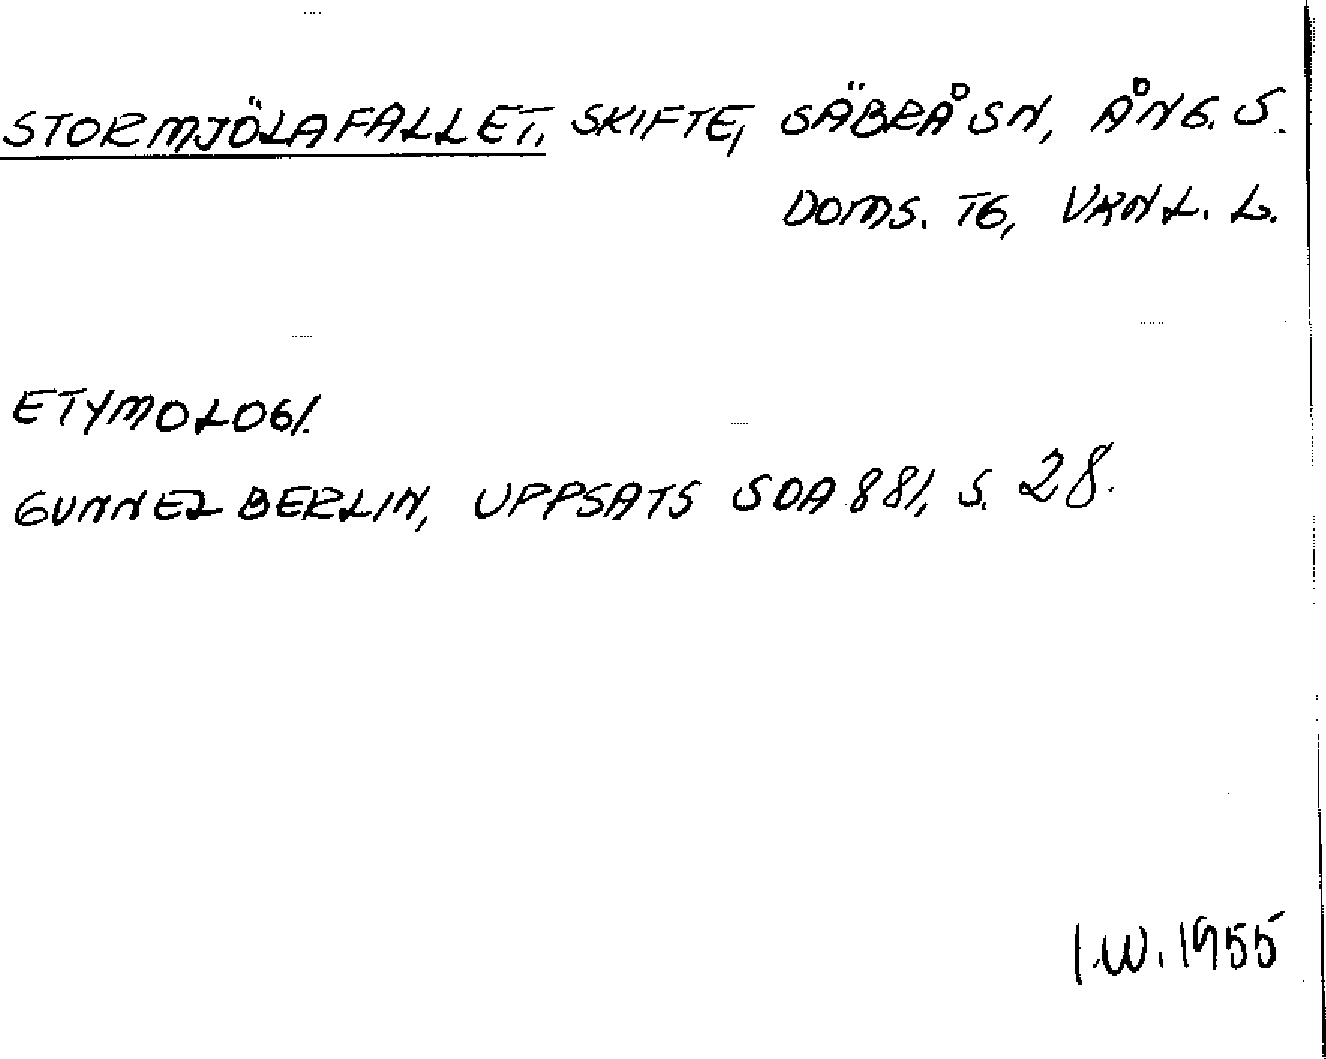 STORMJÖLAFALLET, SKIFTE, SÄBRÅ SN, ÅNG. S.
DOMS. TG, VÄNL. L.
ETYMOLOGI.
GUNNEL BERLIN, UPPSATS SOA 881, S. 28.
I.W. 1955